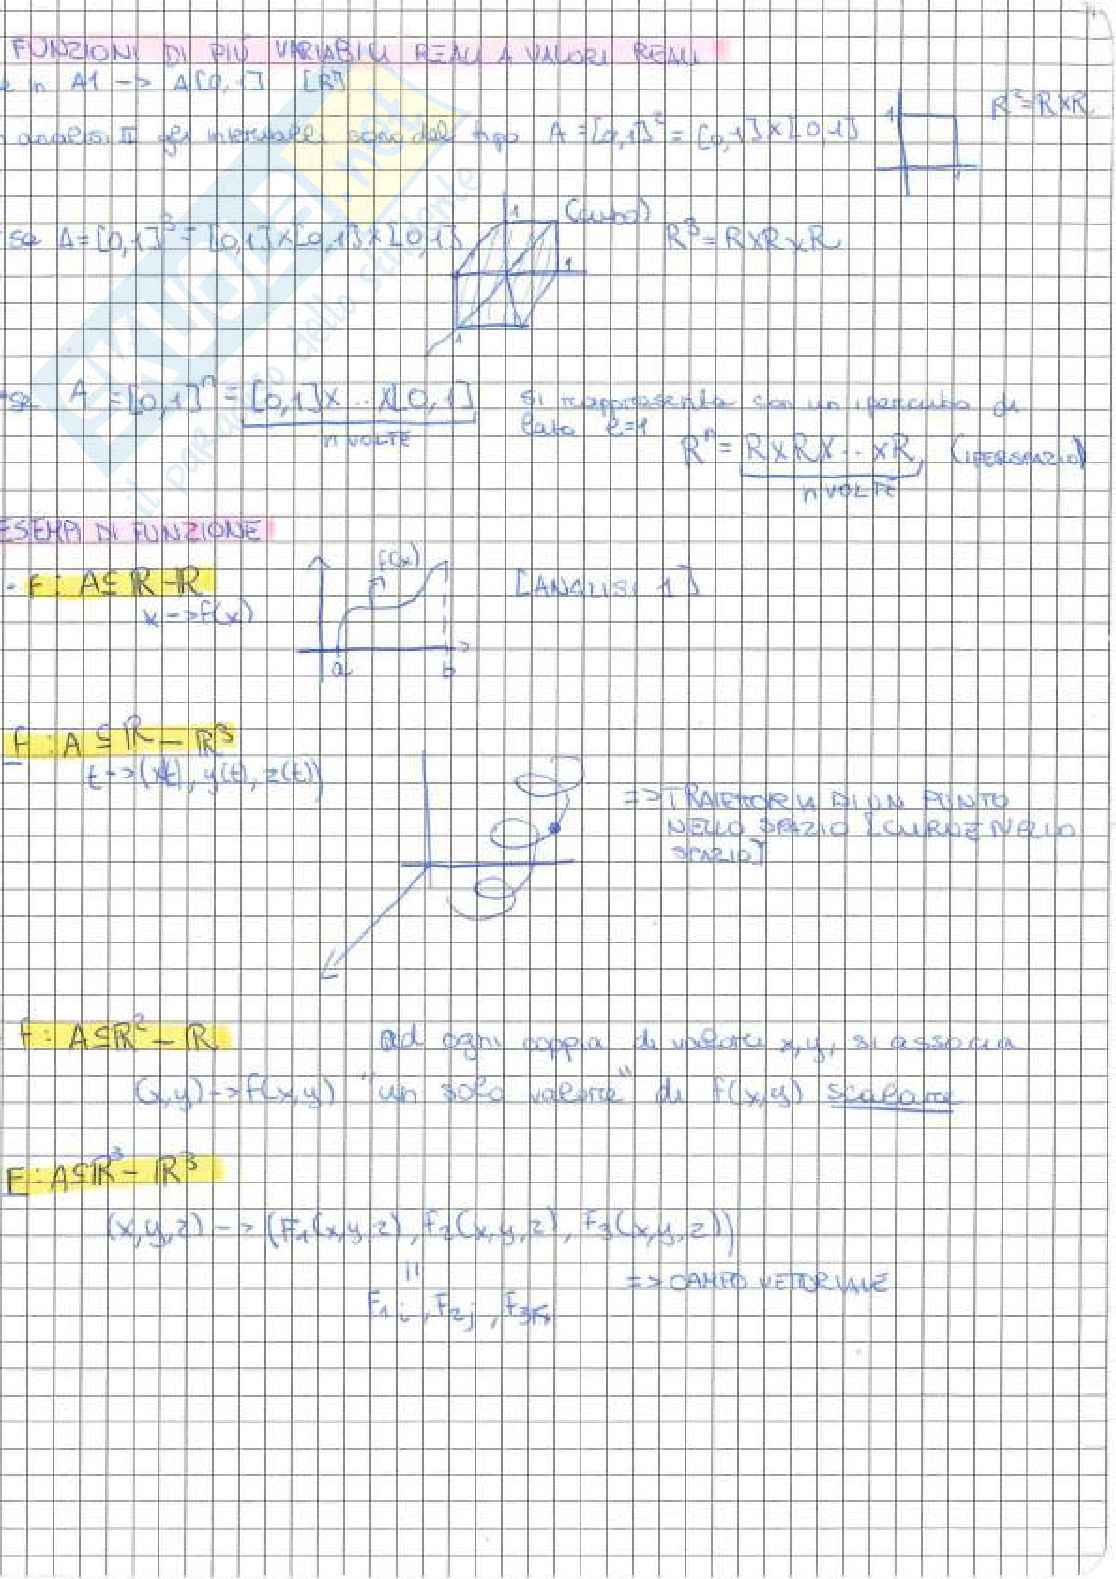 FUNZIONI DI PIÙ VARIABILI REALI A VALORI REALI
in A1 -> A[0,1] [R]
analisi II gli intervalli sono del tipo A = [0,1]² = [0,1]x[0,1]
1
R²=RxR
se A=[0,1]³ = [0,1]x[0,1]x[0,1]
1
(cubo)
1
1
R³=RxRxR
se A = [0,1]ⁿ = [0,1]x...x[0,1]
n VOLTE
si rappresenta con un ipercubo di
lato l=1
Rⁿ = RxRx...xR (IPERSPAZIO)
n VOLTE
ESEMPI DI FUNZIONE
- F: A⊆R-R
x->f(x)
f(x)
a
b
[ANALISI 1]
F: A⊆R-R³
t->(x(t), y(t), z(t))
=> TRAIETTORIA DI UN PUNTO
NELLO SPAZIO [CURVE NELLO
SPAZIO]
f: A⊆R²-R
ad ogni coppia di valori x,y, si associa
(x,y)->f(x,y) "un solo valore" di f(x,y) scalare
F: A⊆R³-R³
(x,y,z) -> (F₁(x,y,z), F₂(x,y,z), F₃(x,y,z))
=> CAMPO VETTORIALE
=
F₁i, F₂j, F₃k
SKUOLA.net
il paradiso dello studente